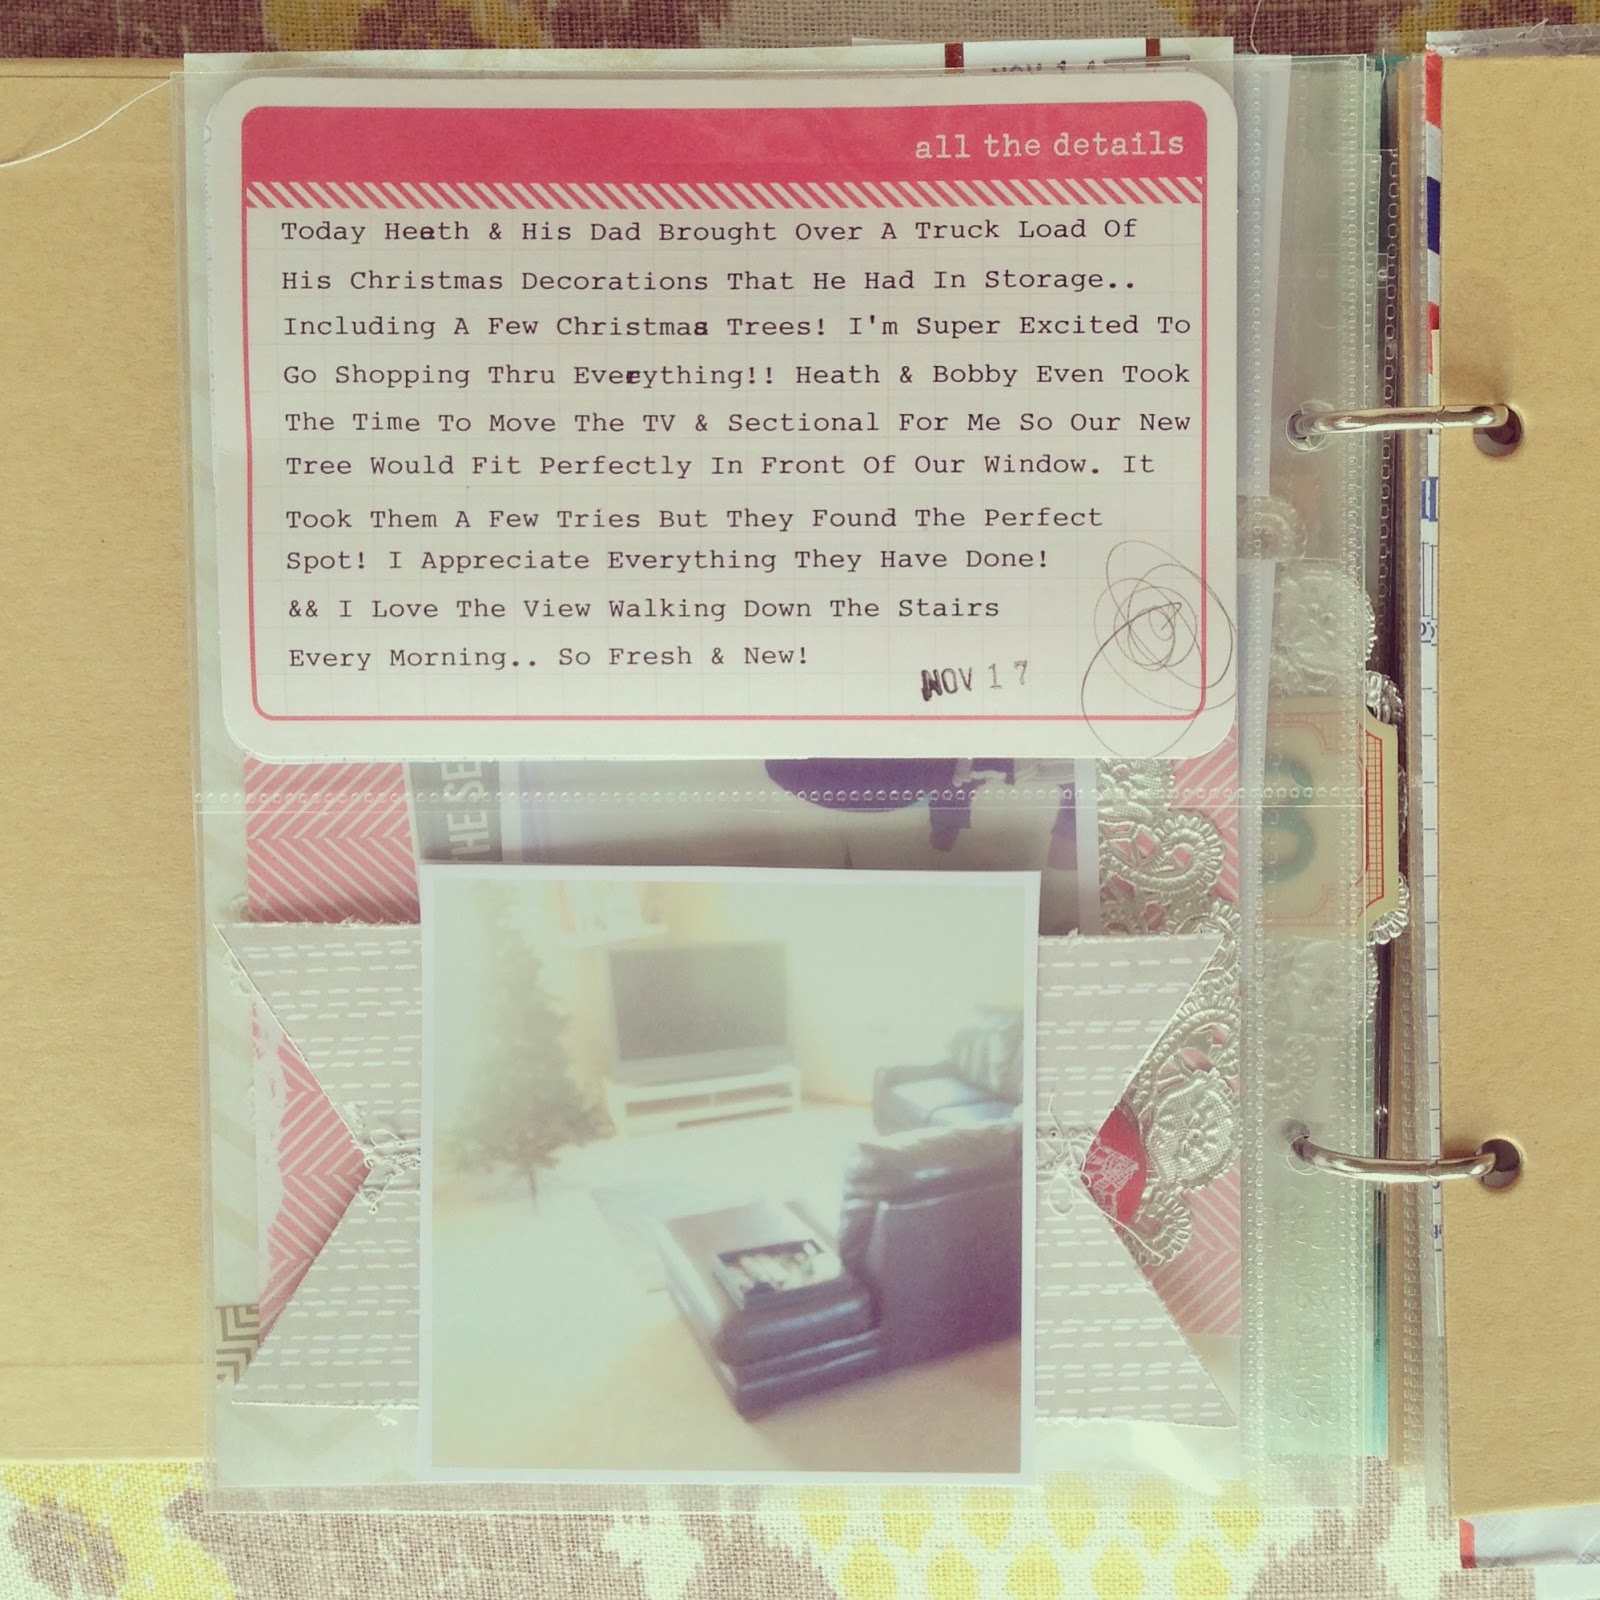 all the details
Today Heath & His Dad Brought Over A Truck Load Of
His Christmas Decorations That He Had In Storage..
Including A Few Christmas Trees! I'm Super Excited To
Go Shopping Thru Everything!! Heath & Bobby Even Took
The Time To Move The TV & Sectional For Me So Our New
Tree Would Fit Perfectly In Front Of Our Window. It
Took Them A Few Tries But They Found The Perfect
Spot! I Appreciate Everything They Have Done!
&& I Love The View Walking Down The Stairs
Every Morning.. So Fresh & New!
NOV 17
THESE